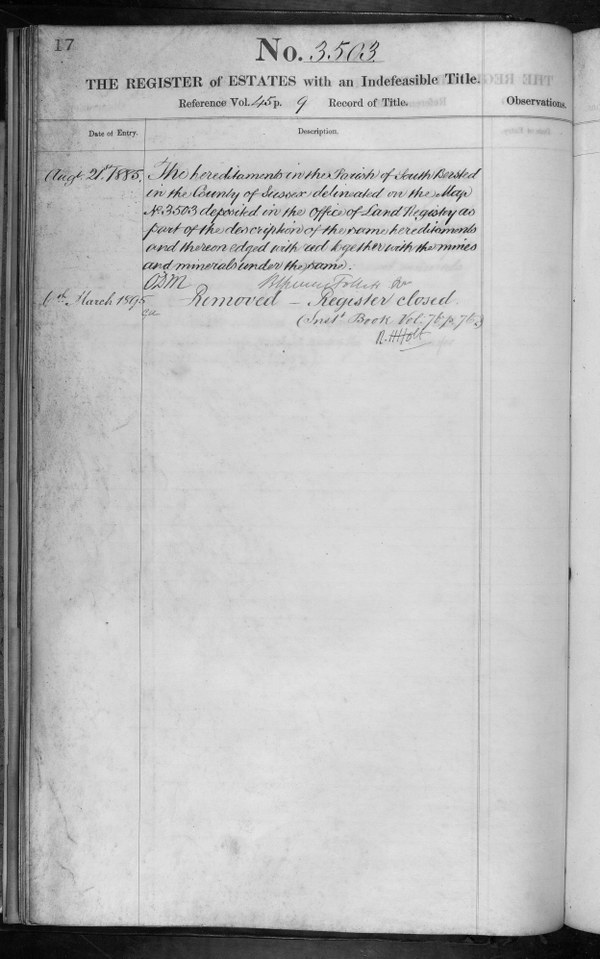 17
No. 3503
THE REGISTER of ESTATES with an Indefeasible Title.
Reference Vol. 45 p. 9 Record of Title.
Observations.
Date of Entry.
Description.
Augt. 21st 1885. The hereditaments in the Parish of South Bersted
in the County of Sussex delineated on the Map
No 3503 deposited in the Office of Land Registry as
part of the description of the same hereditaments
and thereon edged with red together with the mines
and minerals under the same.
6th March 1895 Removed – Register closed.
(Inst. Book, Vol. 76 p. 76.)
R. H. Holt